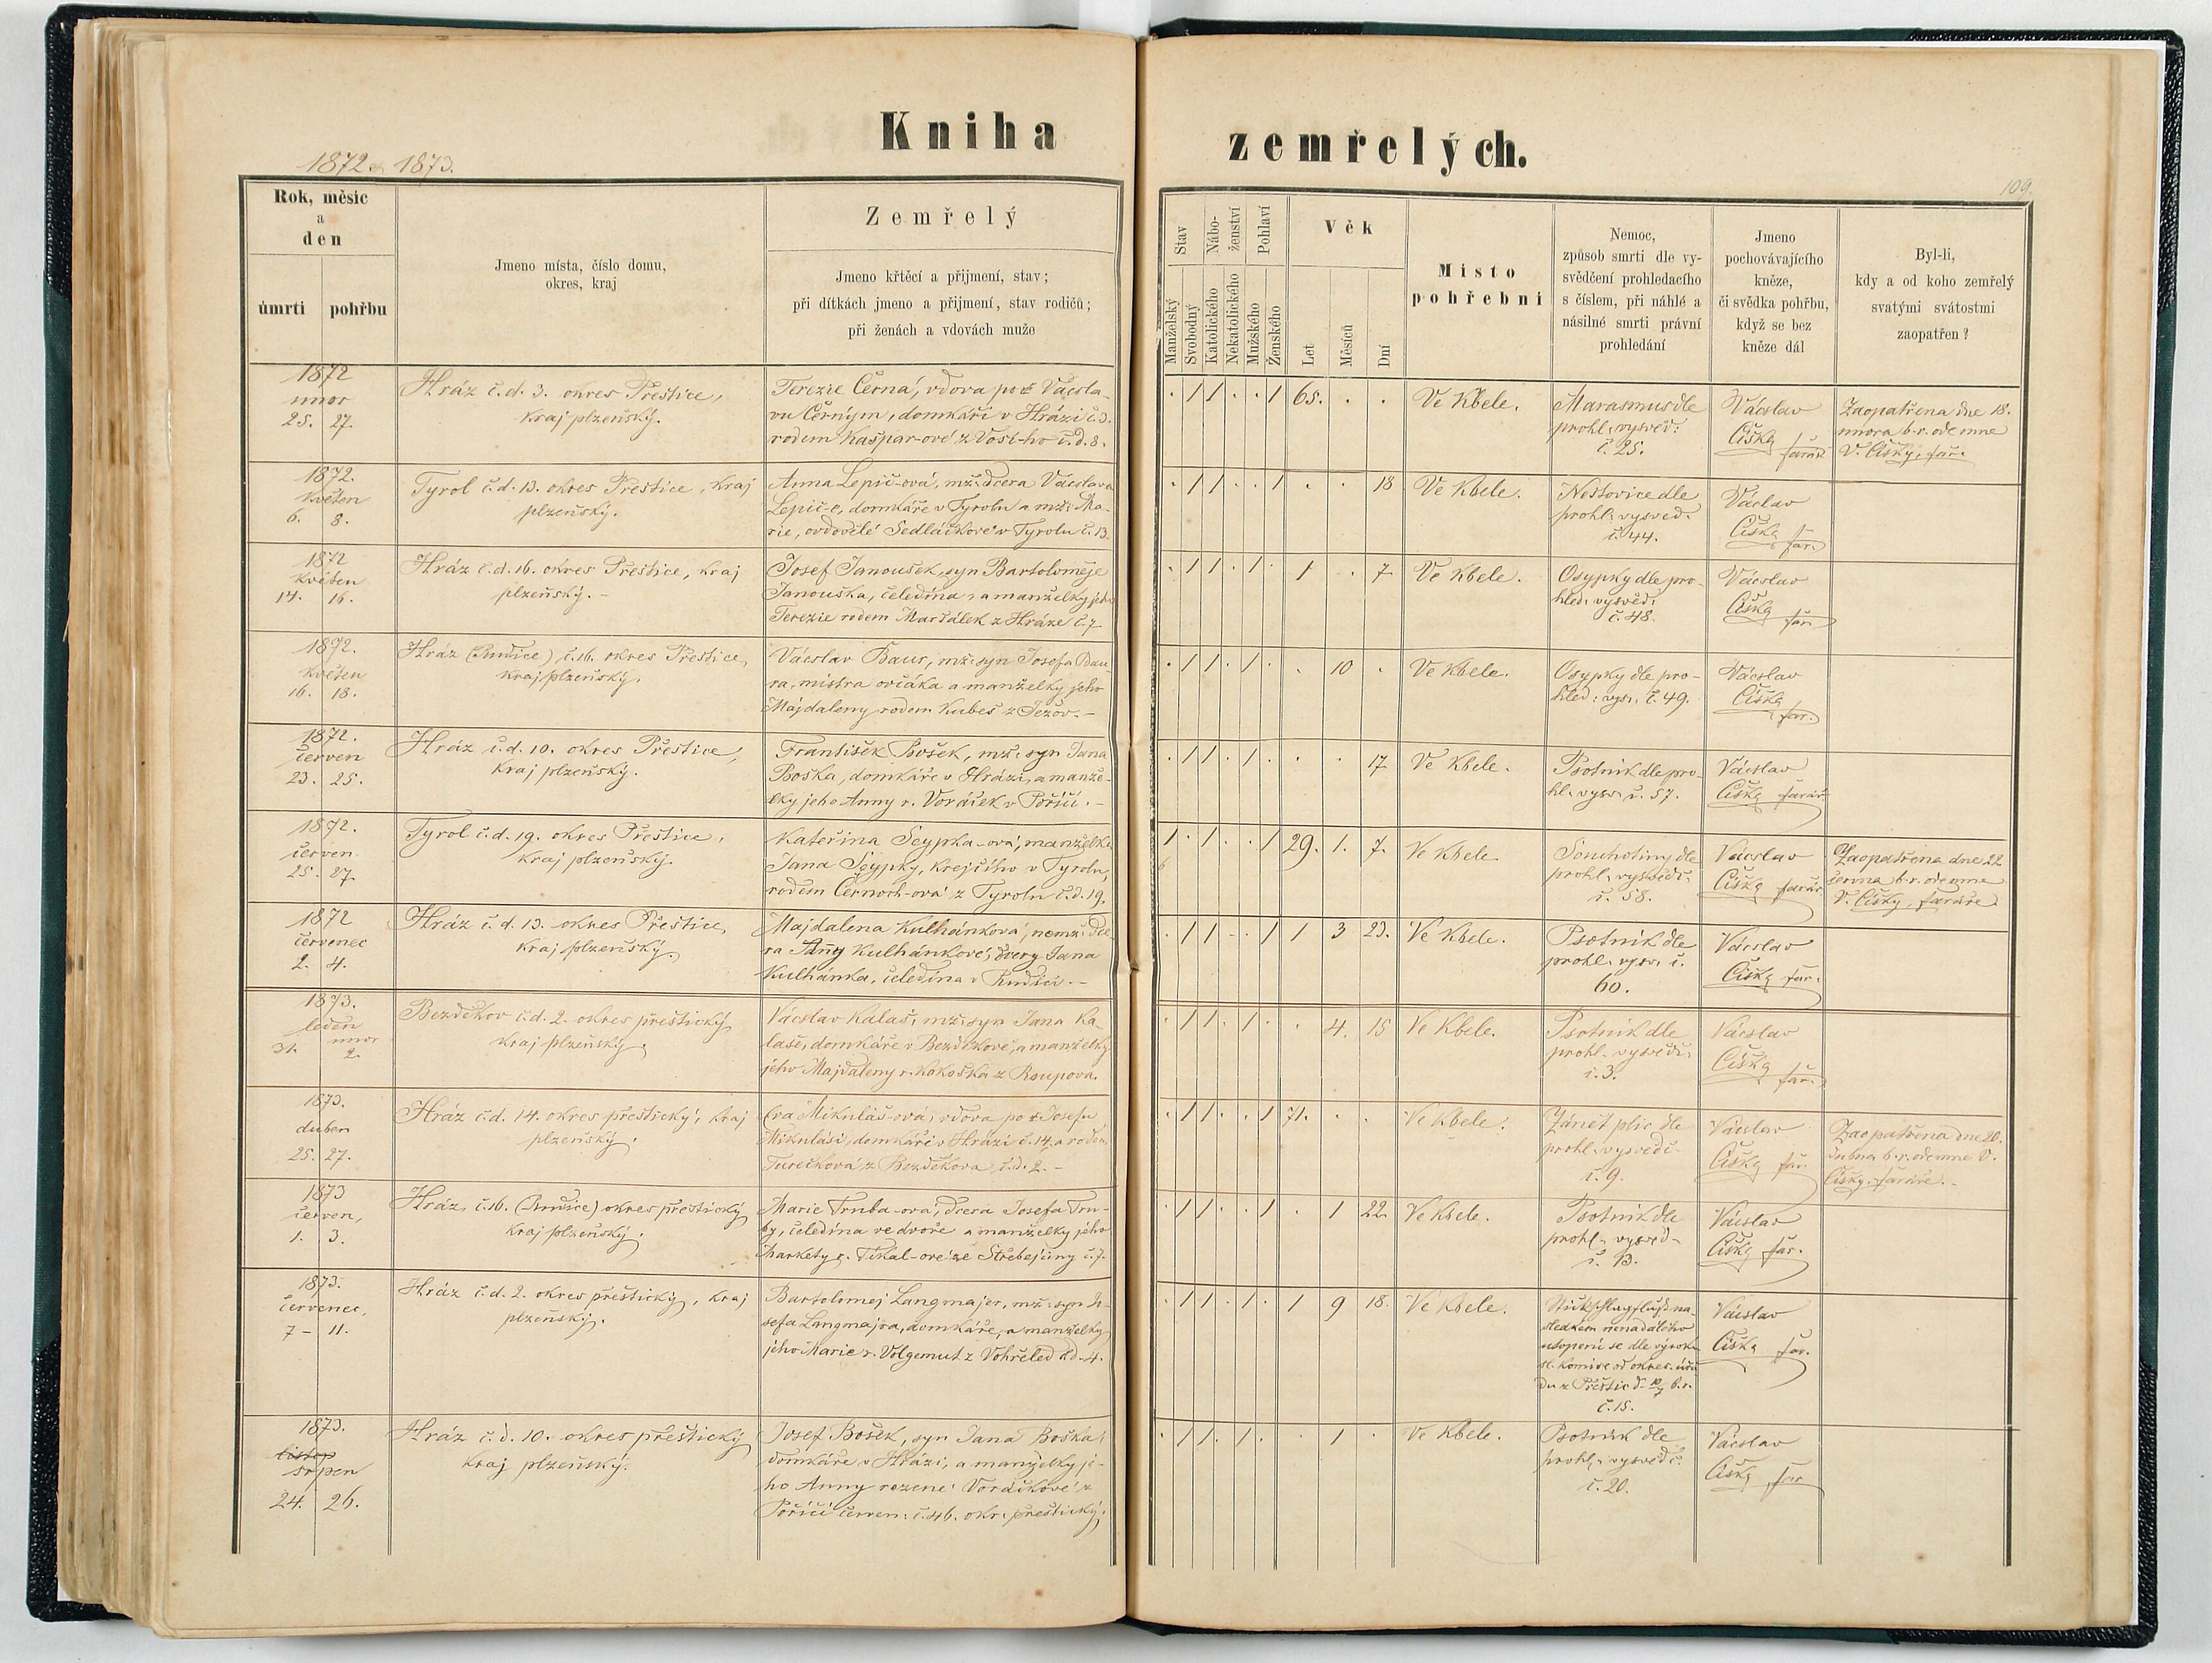 Kniha
zemřelých.
1872 & 1873.
109.
Rok, měsíc
a
den
úmrtí
pohřbu
Jmeno místa, číslo domu,
okres, kraj
Zemřelý
Jmeno křtěcí a přijmení, stav;
při dítkách jmeno a přijmení, stav rodičů;
při ženách a vdovách muže
Stav
Nábo-
ženství
Pohlaví
Věk
Manželský
Svobodný
Katolického
Nekatolického
Mužského
Ženského
Let
Měsíců
Dní
Místo
pohřební
Nemoc,
způsob smrti dle vy-
svědčení prohledacího
s číslem, při náhlé a
násilné smrti právní
prohledání
Jmeno
pochovávajícího
kněze,
či svědka pohřbu,
když se bez
kněze dál
Byl-li,
kdy a od koho zemřelý
svatými svátostmi
zaopatřen?
1872
únor
25. 27.
Hráz č.d. 3. okres Přestice,
kraj plzeňský.
Terezie Černá, vdova po Vácsla-
vu Černým, domkáři v Hrázi č.3.
rodem Kašpar-ové z Vosí-ho č.d. 8.
. 1 1 . . 1 65. . .
Ve Kbele.
Marasmus dle
prohl. vysvěd:
č. 25.
Václav
Čiška
farář
Zaopatřena dne 18.
února b.r. odemne
V. Čišky, far.
1872.
květen
6. 8.
Tyrol č.d. 13. okres Přestice, kraj
plzeňský.
Anna Lepič-ová, mž. dcera Václava
Lepič-e, domkáře v Tyrolu a mž. Ma-
rie, ovdovělé Sedláčkové v Tyrolu č. 13.
. 1 1 . . 1 . . 18
Ve Kbele.
Neštovice dle
prohl. vysvěd.
č. 44.
Václav
Čiška
far.
1872
květen
14. 16.
Hráz č.d. 16. okres Přestice, kraj
plzeňský. -
Josef Janoušek, syn Bartoloměje
Janouška, čeledína, a manželky jeho
Terezie rodem Maršálek z Hráze č. 7
. 1 1 . 1 . 1 . 7
Ve Kbele.
Osypky dle pro-
hled. vysvěd:
č. 48.
Václav
Čiška
far.
1872.
květen
16. 18.
Hráz (Rudice) č. 16. okres Přestice,
kraj plzeňský.
Václav Baur, mž. syn Josefa Bau-
ra, mistra ovčáka a manželky jeho
Majdaleny rodem Kubeš z Ježov. -
. 1 1 . 1 . . 10 .
Ve Kbele.
Osypky dle pro-
hled: vysv. č. 49.
Václav
Čiška
far.
1872.
červen
23. 25.
Hráz č.d. 10. okres Přestice,
kraj plzeňský.
František Bošek, mž. syn Jana
Boška, domkáře v Hrázi, a manže-
lky jeho Anny r. Voráček v Poříčí. -
. 1 1 . 1 . . . 17
Ve Kbele.
Psotník dle pro-
hl. vysv. č. 57.
Václav
Čiška farář.
1872.
červen
25. 27.
Tyrol č.d. 19. okres Přestice,
kraj plzeňský.
Kateřina Scypka-ová, manželka
Jana Scypky, krejčího v Tyrolu,
rodem Černoch-ová z Tyrolu č.d. 19.
1 . 1 . . 1 29. 1. 7.
Ve Kbele
Souchotiny dle
prohl. vysvědč.
č. 58.
Václav
Čiška farář
Zaopatřena dne 22.
června b.r. odemne
V. Čišky, faráře.
1872
červenec
2. 4.
Hráz č.d. 13. okres Přestice,
kraj plzeňský.
Majdalena Kulhánková, nemž. dce-
ra Anny Kulhánkové, dcery Jana
Kulhánka, čeledína v Rudici. -
. 1 1 - . 1 1 3 23.
Ve Kbele.
Psotník dle
prohl. vysv. č.
60.
Václav
Čiška far.
1873.
leden únor
31. 2.
Bezděkov č.d. 2. okres přestický
kraj plzeňský.
Václav Kalaš, mž. syn Jana Ka-
laše, domkáře v Bezděkově, a manželky
jeho Majdaleny r. Kokoška z Roupova.
. 1 1 . 1 . . 4. 15
Ve Kbele.
Psotník dle
prohl. vysvědč.
č. 3.
Václav
Čiška
far.
1873.
duben
25. 27.
Hráz č.d. 14. okres přestický, kraj
plzeňský.
Eva Mikuláš-ová, vdova po Josefu
Mikuláši, domkáři v Hrázi č. 14, a rodem
Turečková z Bezděkova č.d. 2. -
. 1 1 . . 1 71. . .
Ve Kbele.
Zánět plic dle
prohl. vysvědč.
č. 9.
Václav
Čiška far.
Zaopatřena dne 20.
dubna b.r. odemne V.
Čišky, faráře. -
1873
červen,
1. 3.
Hráz č. 16. (Rudice) okres přestický
kraj plzeňský.
Marie Truba-ová, dcera Josefa Tru-
by, čeledína ve dvoře a manželky jeho
Markety r. Tikal-ové ze Střebejčiny č. 7.
. 1 1 . . 1 . 1 22.
Ve Kbele.
Psotník dle
prohl. vysvěd-
č. 13.
Václav
Čiška far.
1873.
červenec,
7 - 11.
Hráz č.d. 2. okres přestický, kraj
plzeňský.
Bartolomej Langmajer, mž. syn Jo-
sefa Langmajra, domkáře, a manželky
jeho Marie r. Volgemut z Vohřeled č.d. 4.
. 1 1 . 1 . 1 9 18.
Ve Kbele.
Stickschlagfluß ná-
sledkem nenadálého
utopení se dle výroku
sl. komise od okres. úřa-
du z Přestic d. 10/7 b.r.
č. 15.
Václav
Čiška far.
1873.
listop
srpen
24. 26.
Hráz č.d. 10. okres přestický
kraj plzeňský.
Josef Bošek, syn Jana Boška,
domkáře v Hrázi, a manželky je-
ho Anny rozené Voráčkové z
Poříčí červen. č. 46. okr. přestický.
. 1 1 . 1 . . 1 .
Ve Kbele.
Psotník dle
prohl. vysvědč.
č. 20.
Václav
Čiška far